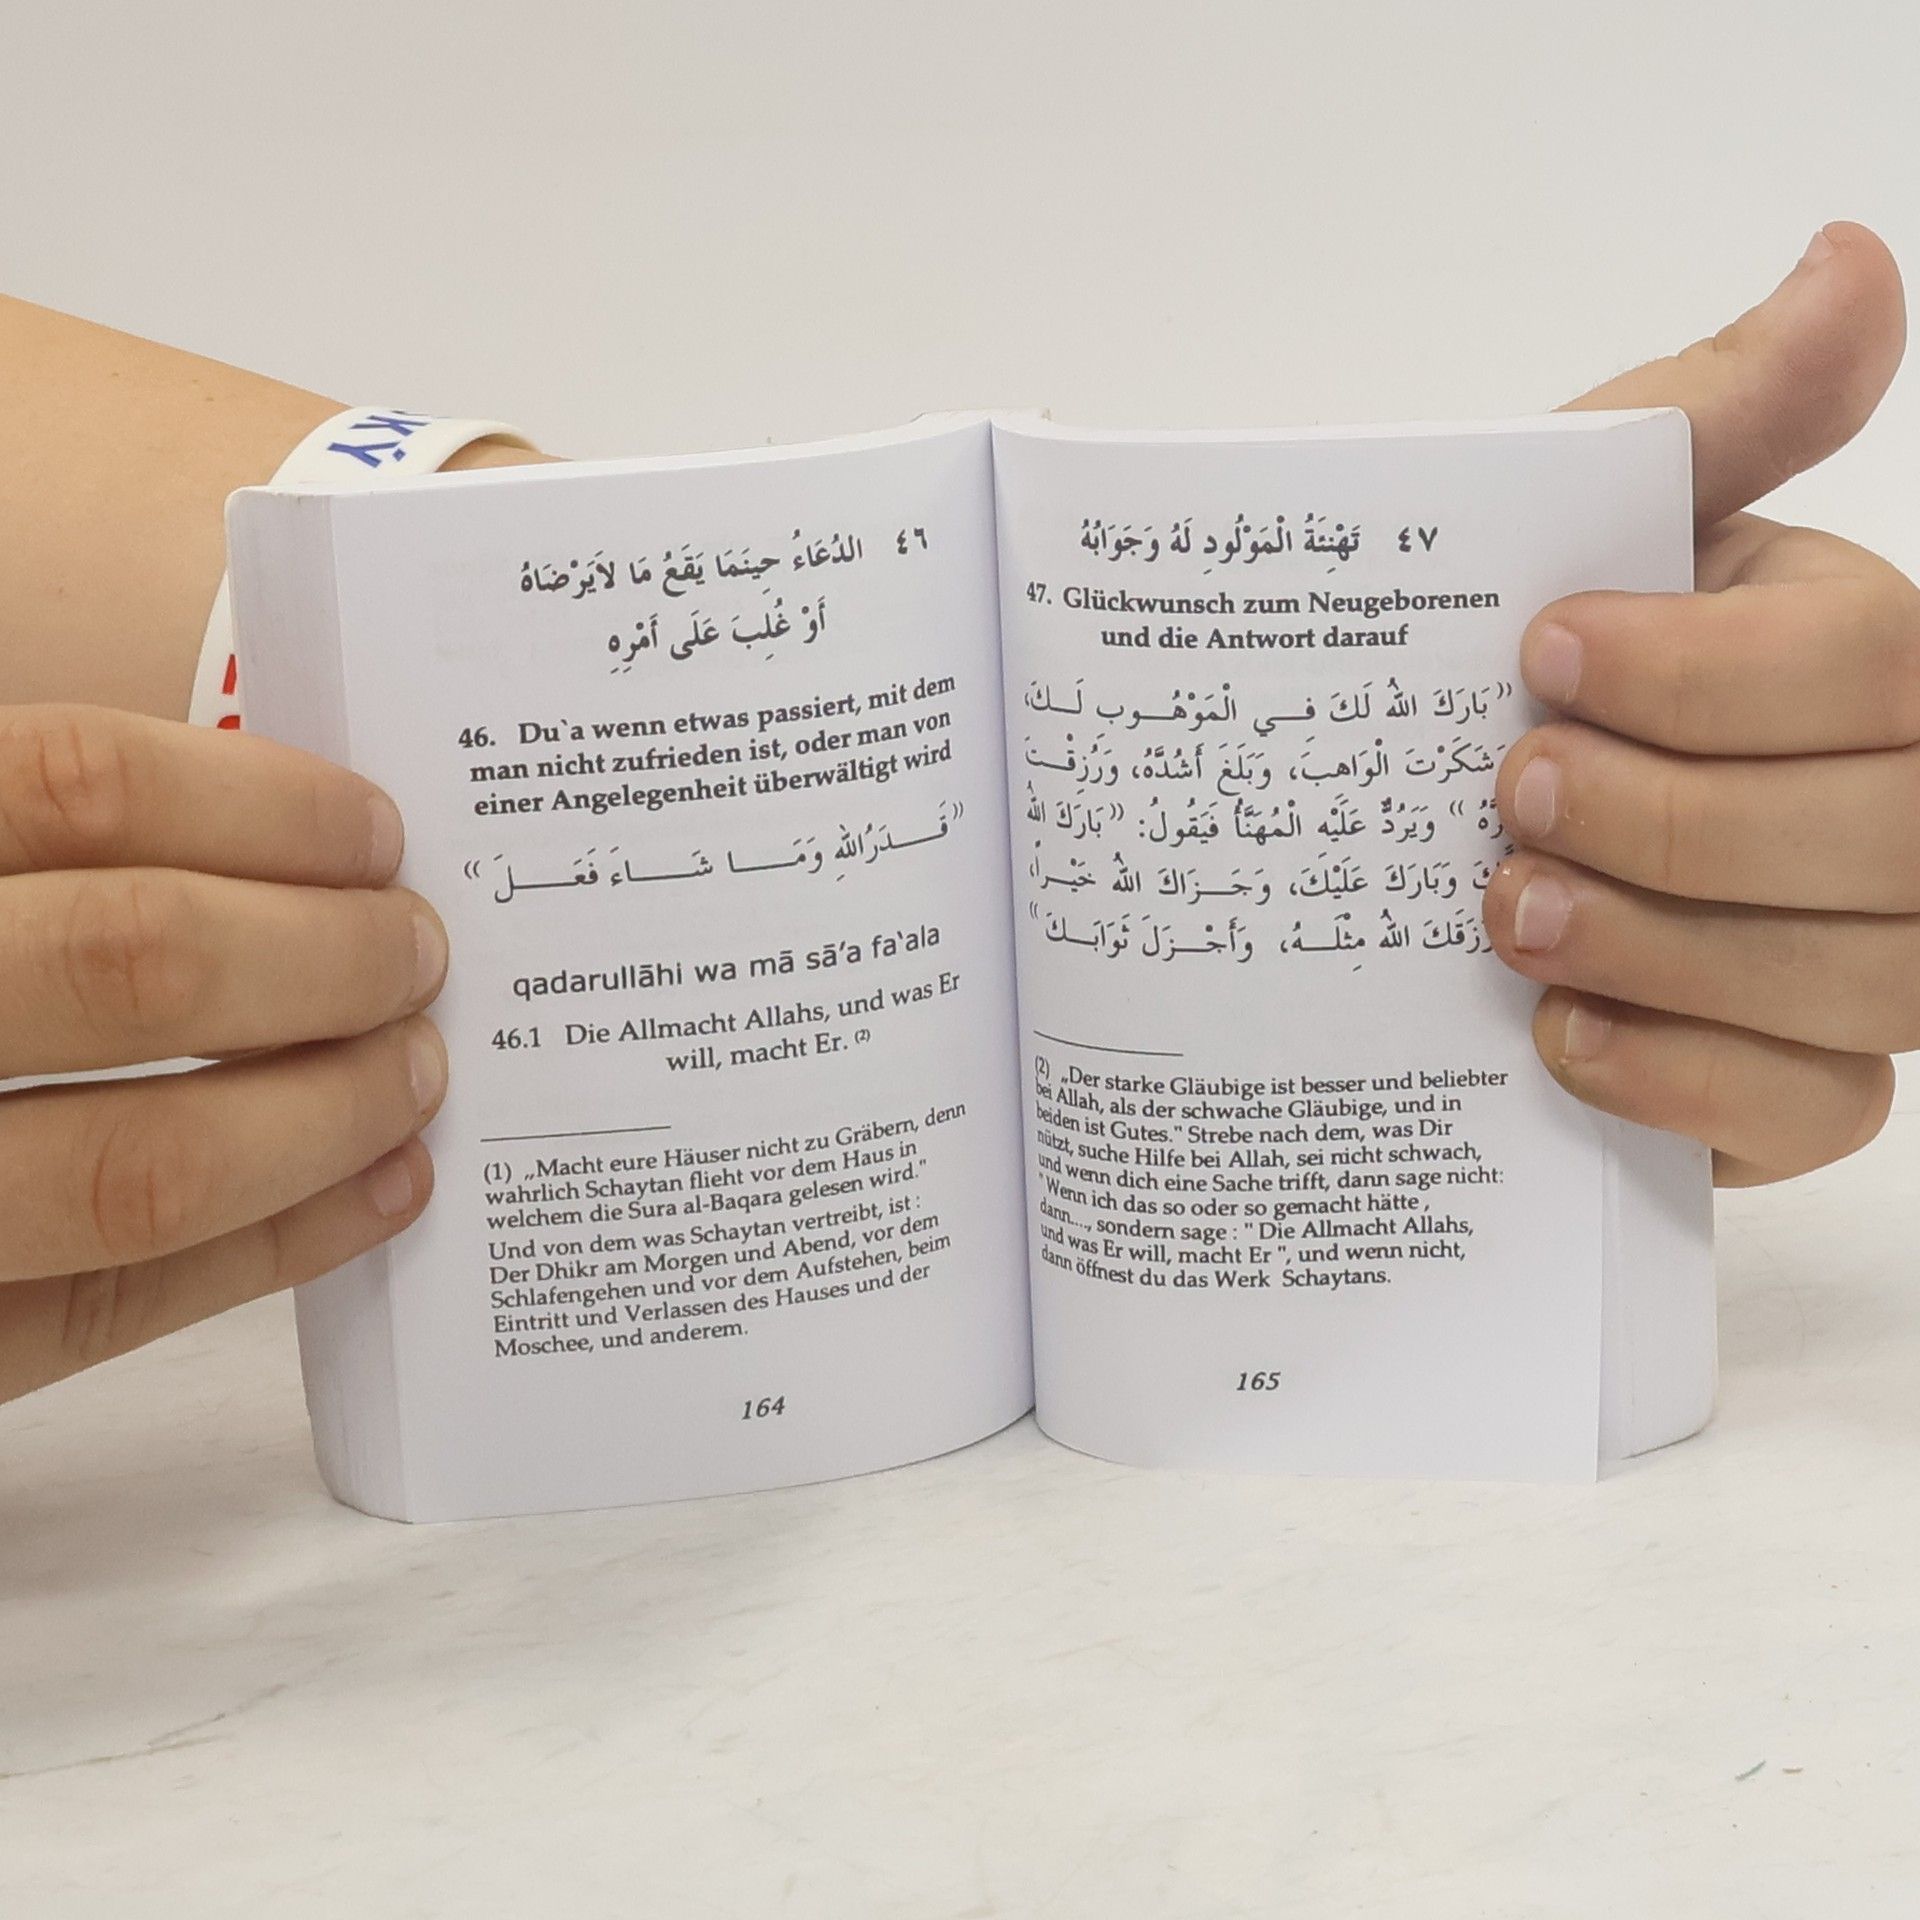 ٤٦ الدُعَاءُ حِينَمَا يَقَعُ مَا لاَيَرْضَاهُ
أَوْ غُلِبَ عَلَى أَمْرِهِ
46. Du`a wenn etwas passiert, mit dem
man nicht zufrieden ist, oder man von
einer Angelegenheit überwältigt wird
((قَـــدَرُاللهِ وَمَـــا شَـــاءَ فَعَـــلَ))
qadarullāhi wa mā sā’a fa‛ala
46.1 Die Allmacht Allahs, und was Er
will, macht Er. (2)
(1) „Macht eure Häuser nicht zu Gräbern, denn
wahrlich Schaytan flieht vor dem Haus in
welchem die Sura al-Baqara gelesen wird."
Und von dem was Schaytan vertreibt, ist :
Der Dhikr am Morgen und Abend, vor dem
Schlafengehen und vor dem Aufstehen, beim
Eintritt und Verlassen des Hauses und der
Moschee, und anderem.
164
٤٧ تَهْنِئَةُ الْمَوْلُودِ لَهُ وَجَوَابُهُ
47. Glückwunsch zum Neugeborenen
und die Antwort darauf
((بَارَكَ اللهُ لَكَ فِـــي الْمَوْهُـــوبِ لَـــكَ،
وَشَكَرْتَ الْوَاهِبَ، وَبَلَغَ أَشُدَّهُ، وَرُزِقْـــتَ
)) وَيَرُدُّ عَلَيْهِ الْمُهَنَّأُ فَيَقُولُ: ((بَارَكَ اللهُ
وَبَارَكَ عَلَيْكَ، وَجَـــزَاكَ اللهُ خَيْـــراً،
اللهُ مِثْلَـــهُ، وَأَجْـــزَلَ ثَوَابَـــكَ))
(2) „Der starke Gläubige ist besser und beliebter
bei Allah, als der schwache Gläubige, und in
beiden ist Gutes." Strebe nach dem, was Dir
nützt, suche Hilfe bei Allah, sei nicht schwach,
und wenn dich eine Sache trifft, dann sage nicht:
"Wenn ich das so oder so gemacht hätte ,
dann...., sondern sage : " Die Allmacht Allahs,
und was Er will, macht Er ", und wenn nicht,
dann öffnest du das Werk Schaytans.
165